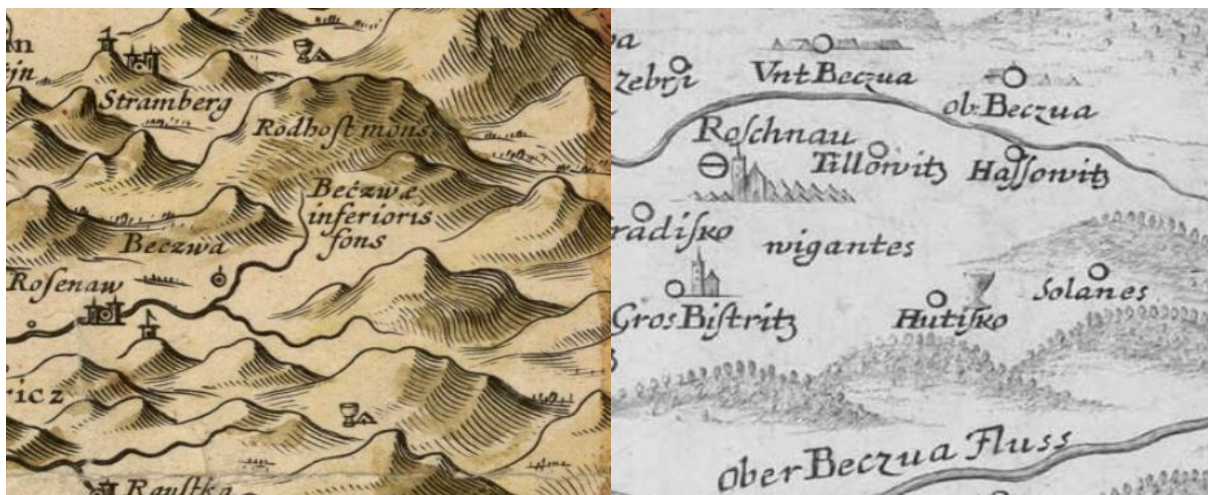 Stramberg
Rodhost mons
Beczwæ
inferioris
fons
Beczwa
Rosenaw
ricz
Raustka
Vnt Beczua
zebrȷi
ob: Beczua
Roschnau
Tillowitz
Hassowitz
radisko
wigantes
Gros Bistritz
Hutisko
Solanes
Ober Beczua Fluss